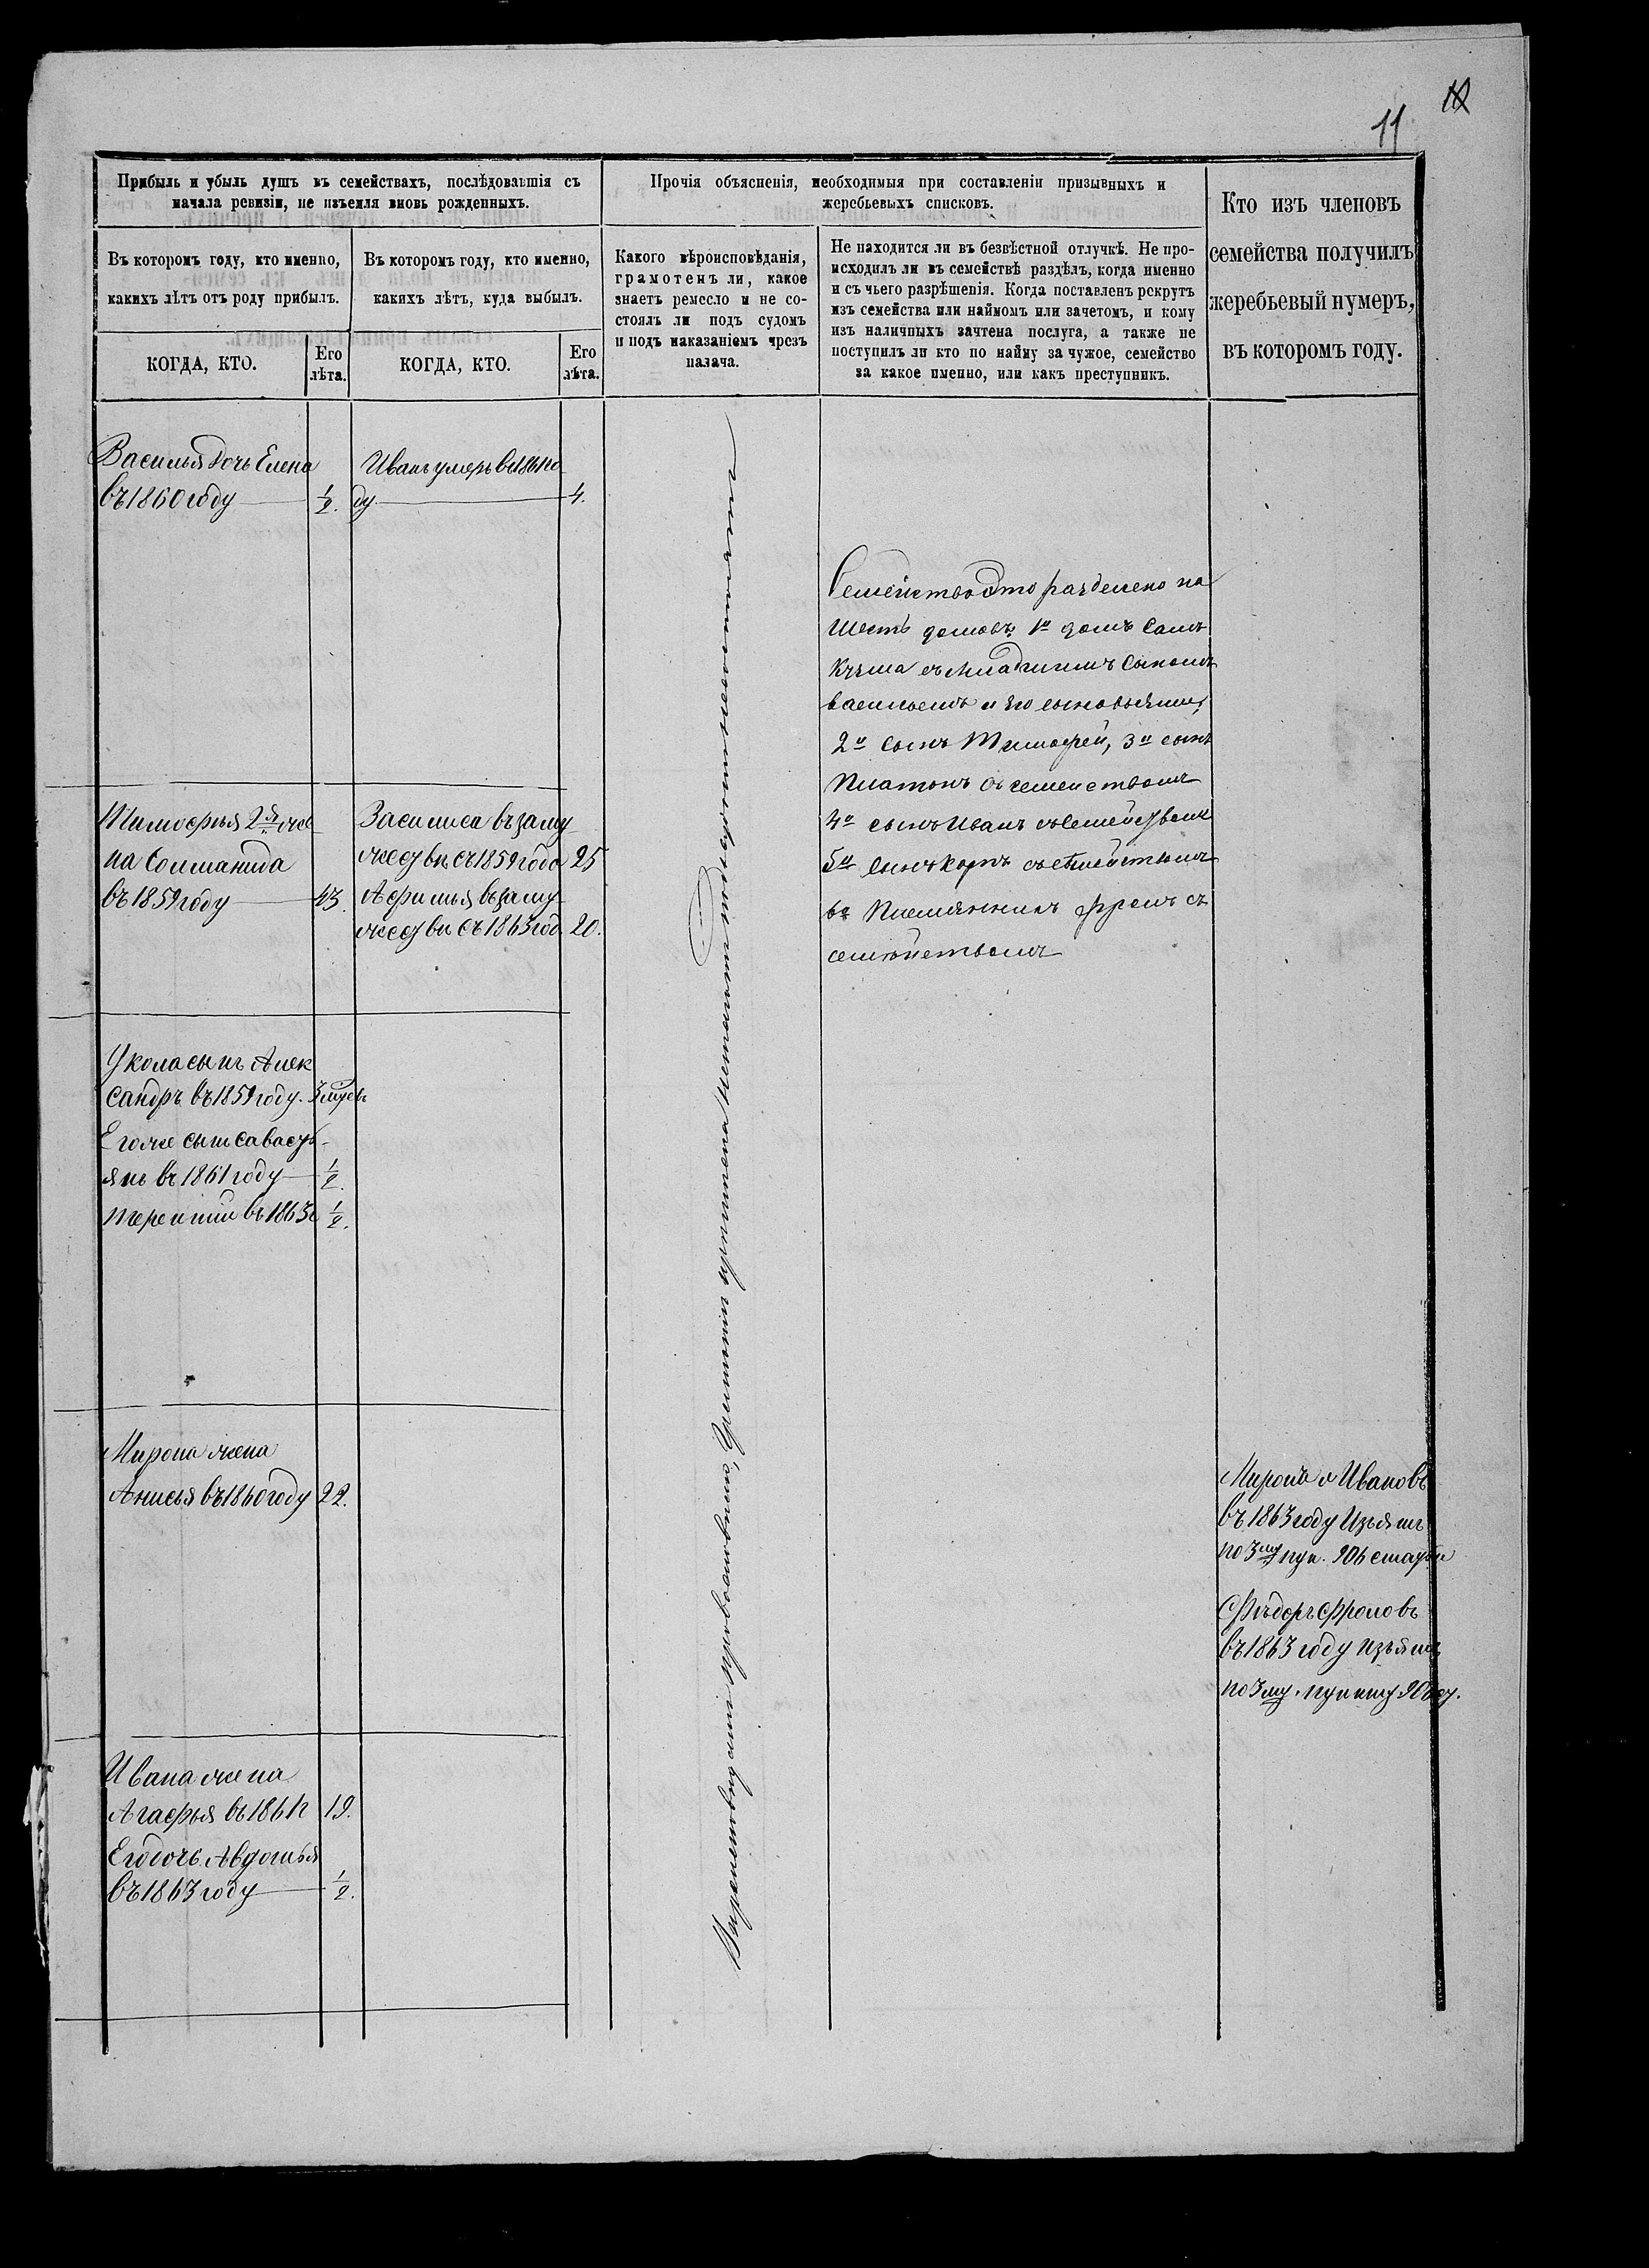 11
10
Прибыль и убыль душъ въ семействахъ, послѣдовавшія съ
начала ревизіи, не изъемля вновь рожденныхъ.
Въ которомъ году, кто именно,
какихъ лѣтъ отъ роду прибылъ.
КОГДА, КТО.
Его
лѣта.
Въ которомъ году, кто именно,
какихъ лѣтъ, куда выбылъ.
КОГДА, КТО.
Его
лѣта.
Прочія объясненія, необходимыя при составленіи призывныхъ и
жеребьевыхъ списковъ.
Какого вѣроисповѣданія,
грамотенъ ли, какое
знаетъ ремесло и не со-
стоялъ ли подъ судомъ
и подъ наказаніемъ чрезъ
палача.
Не находится ли въ безвѣстной отлучкѣ. Не про-
исходилъ ли въ семействѣ раздѣлъ, когда именно
и съ чьего разрѣшенія. Когда поставленъ рекрутъ
изъ семейства или наймомъ или зачетомъ, и кому
изъ наличныхъ зачтена послуга, а также не
поступилъ ли кто по найму за чужое, семейство
за какое именно, или какъ преступникъ.
Кто изъ членовъ
семейства получилъ
жеребьевый нумеръ,
въ которомъ году.
Василья дочь Елена
въ 1860 году 1/2.
Иванъ умеръ в 1861 го
ду 4.
Тимофея 2я же
на Соломанида
въ 1859 году 43.
Василиса въ заму
жеству съ 1859 года 25
Афимья въ заму
жеству съ 1863 год 20.
У кола сынъ Алек
сандръ въ 1859 году.
Егоже сынъ Саваст
янъ въ 1861 году 1/2.
терентий въ 1863 г 1/2.
Мирона жена
Анисья въ 1860 году 22.
Ивана жена
Агафья въ 1861 г 19.
Его дочь Авдотья
въ 1863 году 1/2.
Вероисповедания православнаго,
Семейство это разделено на
шесть домовъ, 1й домъ Самъ
Кузма съ младшимъ сыномъ
васильемъ и его сыновьями,
2й сынъ Тимофей, 3й сынъ
Платонъ съ семействомъ
4й сынъ Иванъ съ семействомъ
5й сынъ карпъ съ семействомъ
6й племянникъ фролъ съ
семействомъ
Миронъ Ивановъ
въ 1863 году Изъятъ
по 3му пун. 906 статьи
Фёдоръ Фроловъ
въ 1863 году изъятъ
по 3му пункту 906 ст.